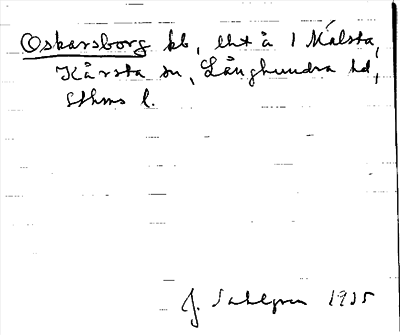 Oskarsborg lb, lht å 1 Målsta,
Kårsta sn, Långhundra hd,
Sthms l.
J. Sahlgren 1935